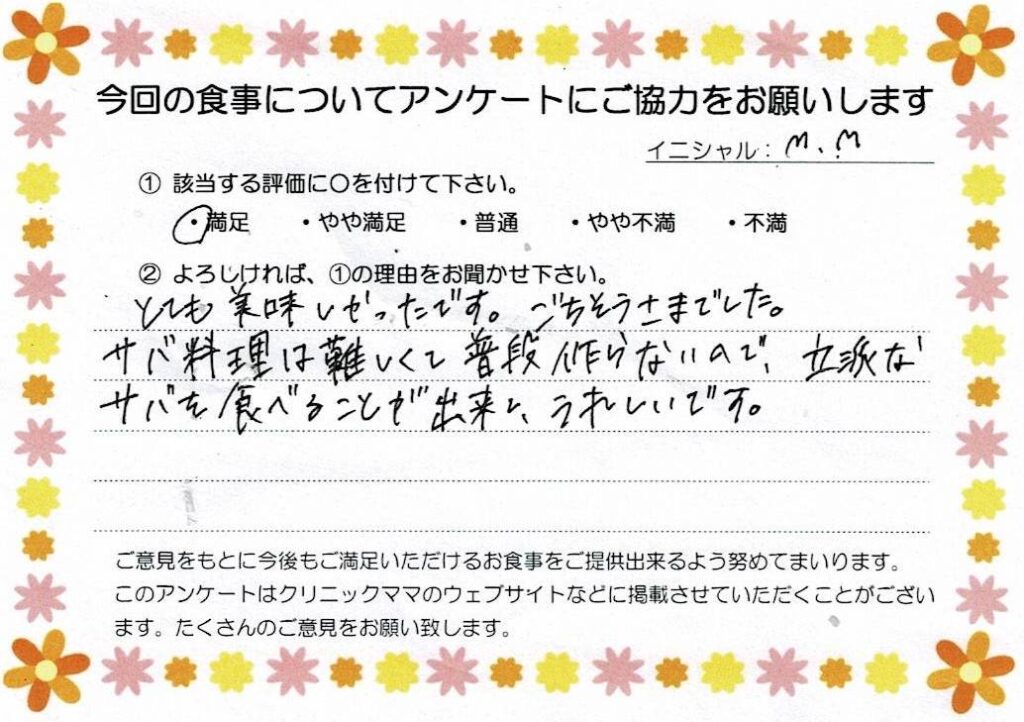 今回の食事についてアンケートにご協力をお願いします
イニシャル： M、M
① 該当する評価に〇を付けて下さい。
・満足 ・やや満足 ・普通 ・やや不満 ・不満
② よろしければ、①の理由をお聞かせ下さい。
とても美味しかったです。ごちそうさまでした。
サバ料理は難しくて普段作らないので、立派な
サバを食べることが出来て、うれしいです。
ご意見をもとに今後もご満足いただけるお食事をご提供出来るよう努めてまいります。
このアンケートはクリニックママのウェブサイトなどに掲載させていただくことがござい
ます。たくさんのご意見をお願い致します。